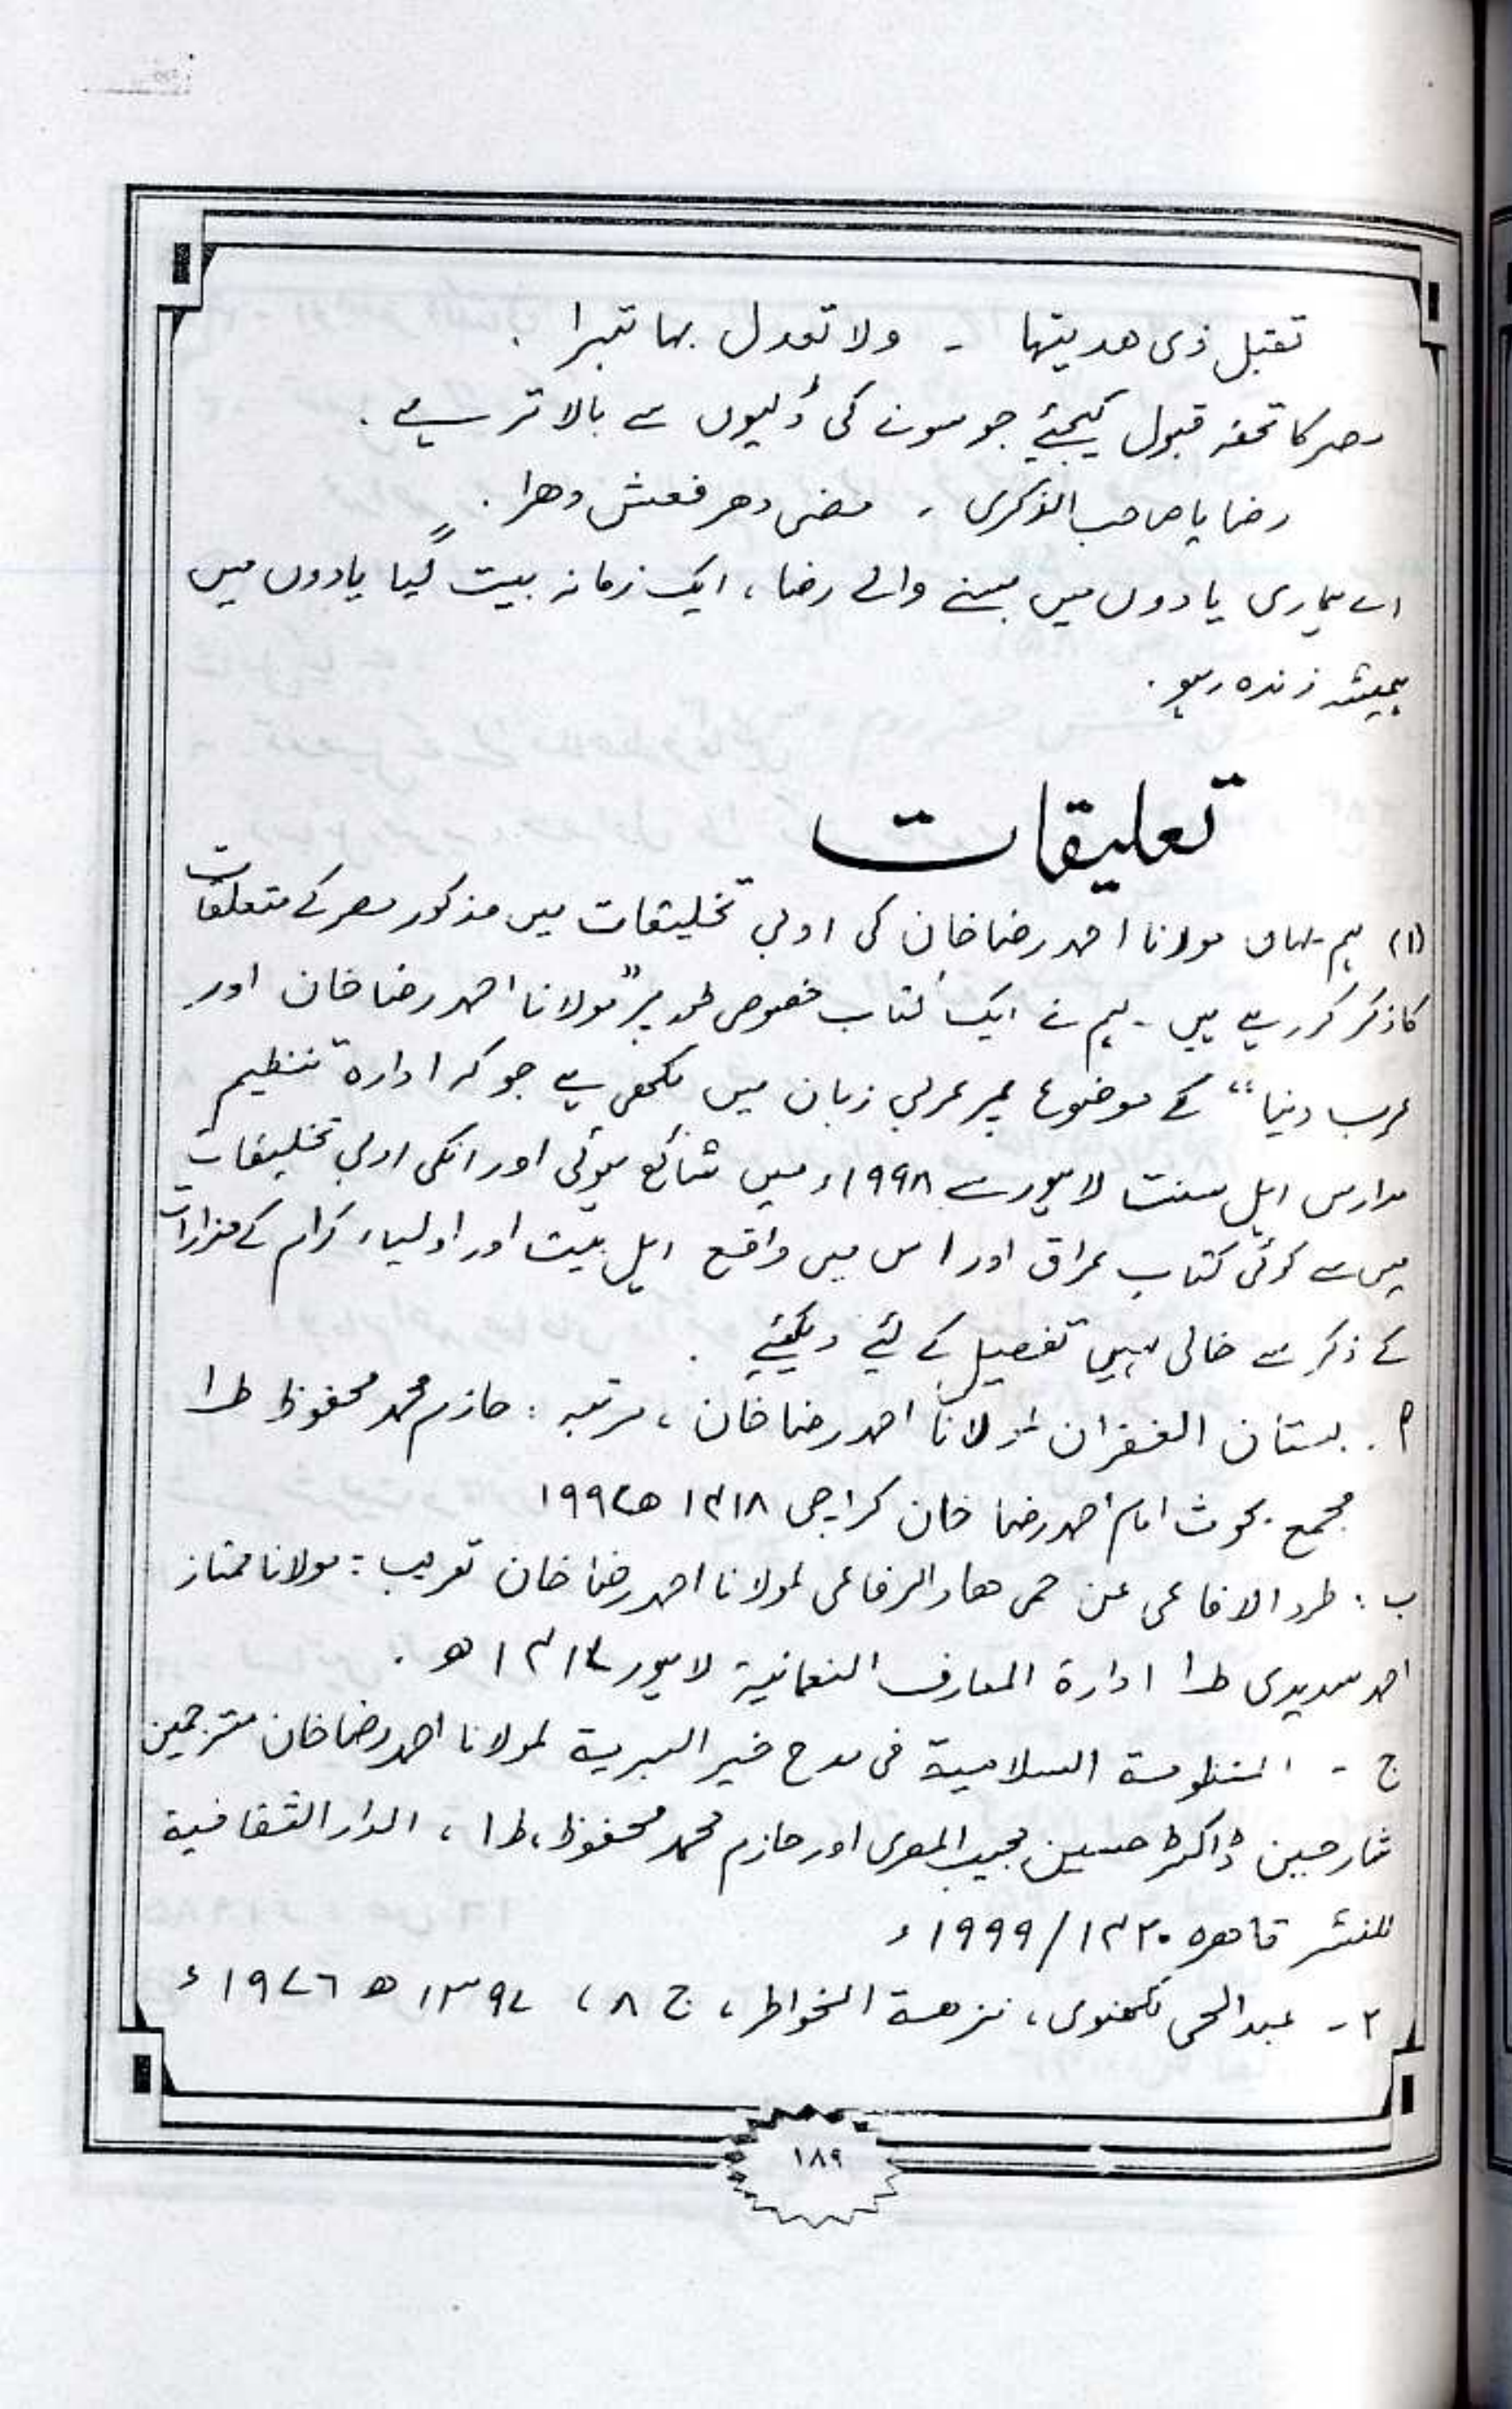 تقبل ذی ھدیتھا - ولا تعدل بھا تبرا .
مصر کا تحفہ قبول کیجئے جو سونے کی ڈلیوں سے بالا تر ہے .
رضا یا صاحب الذکری ، مضی دھر فعش دھرا .
اے ہماری یادوں میں بسنے والے رضا ، ایک زمانہ بیت گیا یادوں میں
ہمیشہ زندہ رہو .
تعلیقات
(۱) ہم یہاں مولانا احمد رضا خان کی ادبی تخلیقات میں مذکور مصر کے متعلقات
کا ذکر کر رہے ہیں - ہم نے ایک کتاب خصوصی طور پر ”مولانا احمد رضا خان اور
عرب دنیا“ کے موضوع پر عربی زبان میں لکھی ہے جو کہ ادارہ تنظیم
مدارس اہل سنت لاہور سے ۱۹۹۸ء میں شائع ہوئی اور انکی ادبی تخلیقات
میں سے کوئی کتاب عراق اور اس میں واقع اہل بیت اور اولیاء کرام کے مزارات
کے ذکر سے خالی نہیں تفصیل کے لئے دیکھئے .
۱ . بستان الغفران لمولانا احمد رضا خان ، مرتبہ : حازم محمد محفوظ ط۱
مجمع بحوث امام احمد رضا خان کراچی ۱۴۱۸ھ ۱۹۹۷
ب : طرد الافاعی عن حمی ھاد الرفاعی لمولانا احمد رضا خان تعریب : مولانا ممتاز
احمد سدیدی ط۱ ادارۃ المعارف النعمانیۃ لاہور ۱۴۱۷ھ .
ج - المنظومۃ السلامیۃ فی مدح خیر البریۃ لمولانا احمد رضا خان مترجمین
شارحین ڈاکٹر حسین مجیب المصری اور حازم محمد محفوظ ، ط۱ ، الدار الثقافیۃ
للنشر قاھرہ ۱۴۲۰/۱۹۹۹ء
۲ - عبدالحی لکھنوی ، نزھۃ الخواطر ، ج ۸ ، ۱۳۹۷ھ ۱۹۷۶ء
۱۸۹